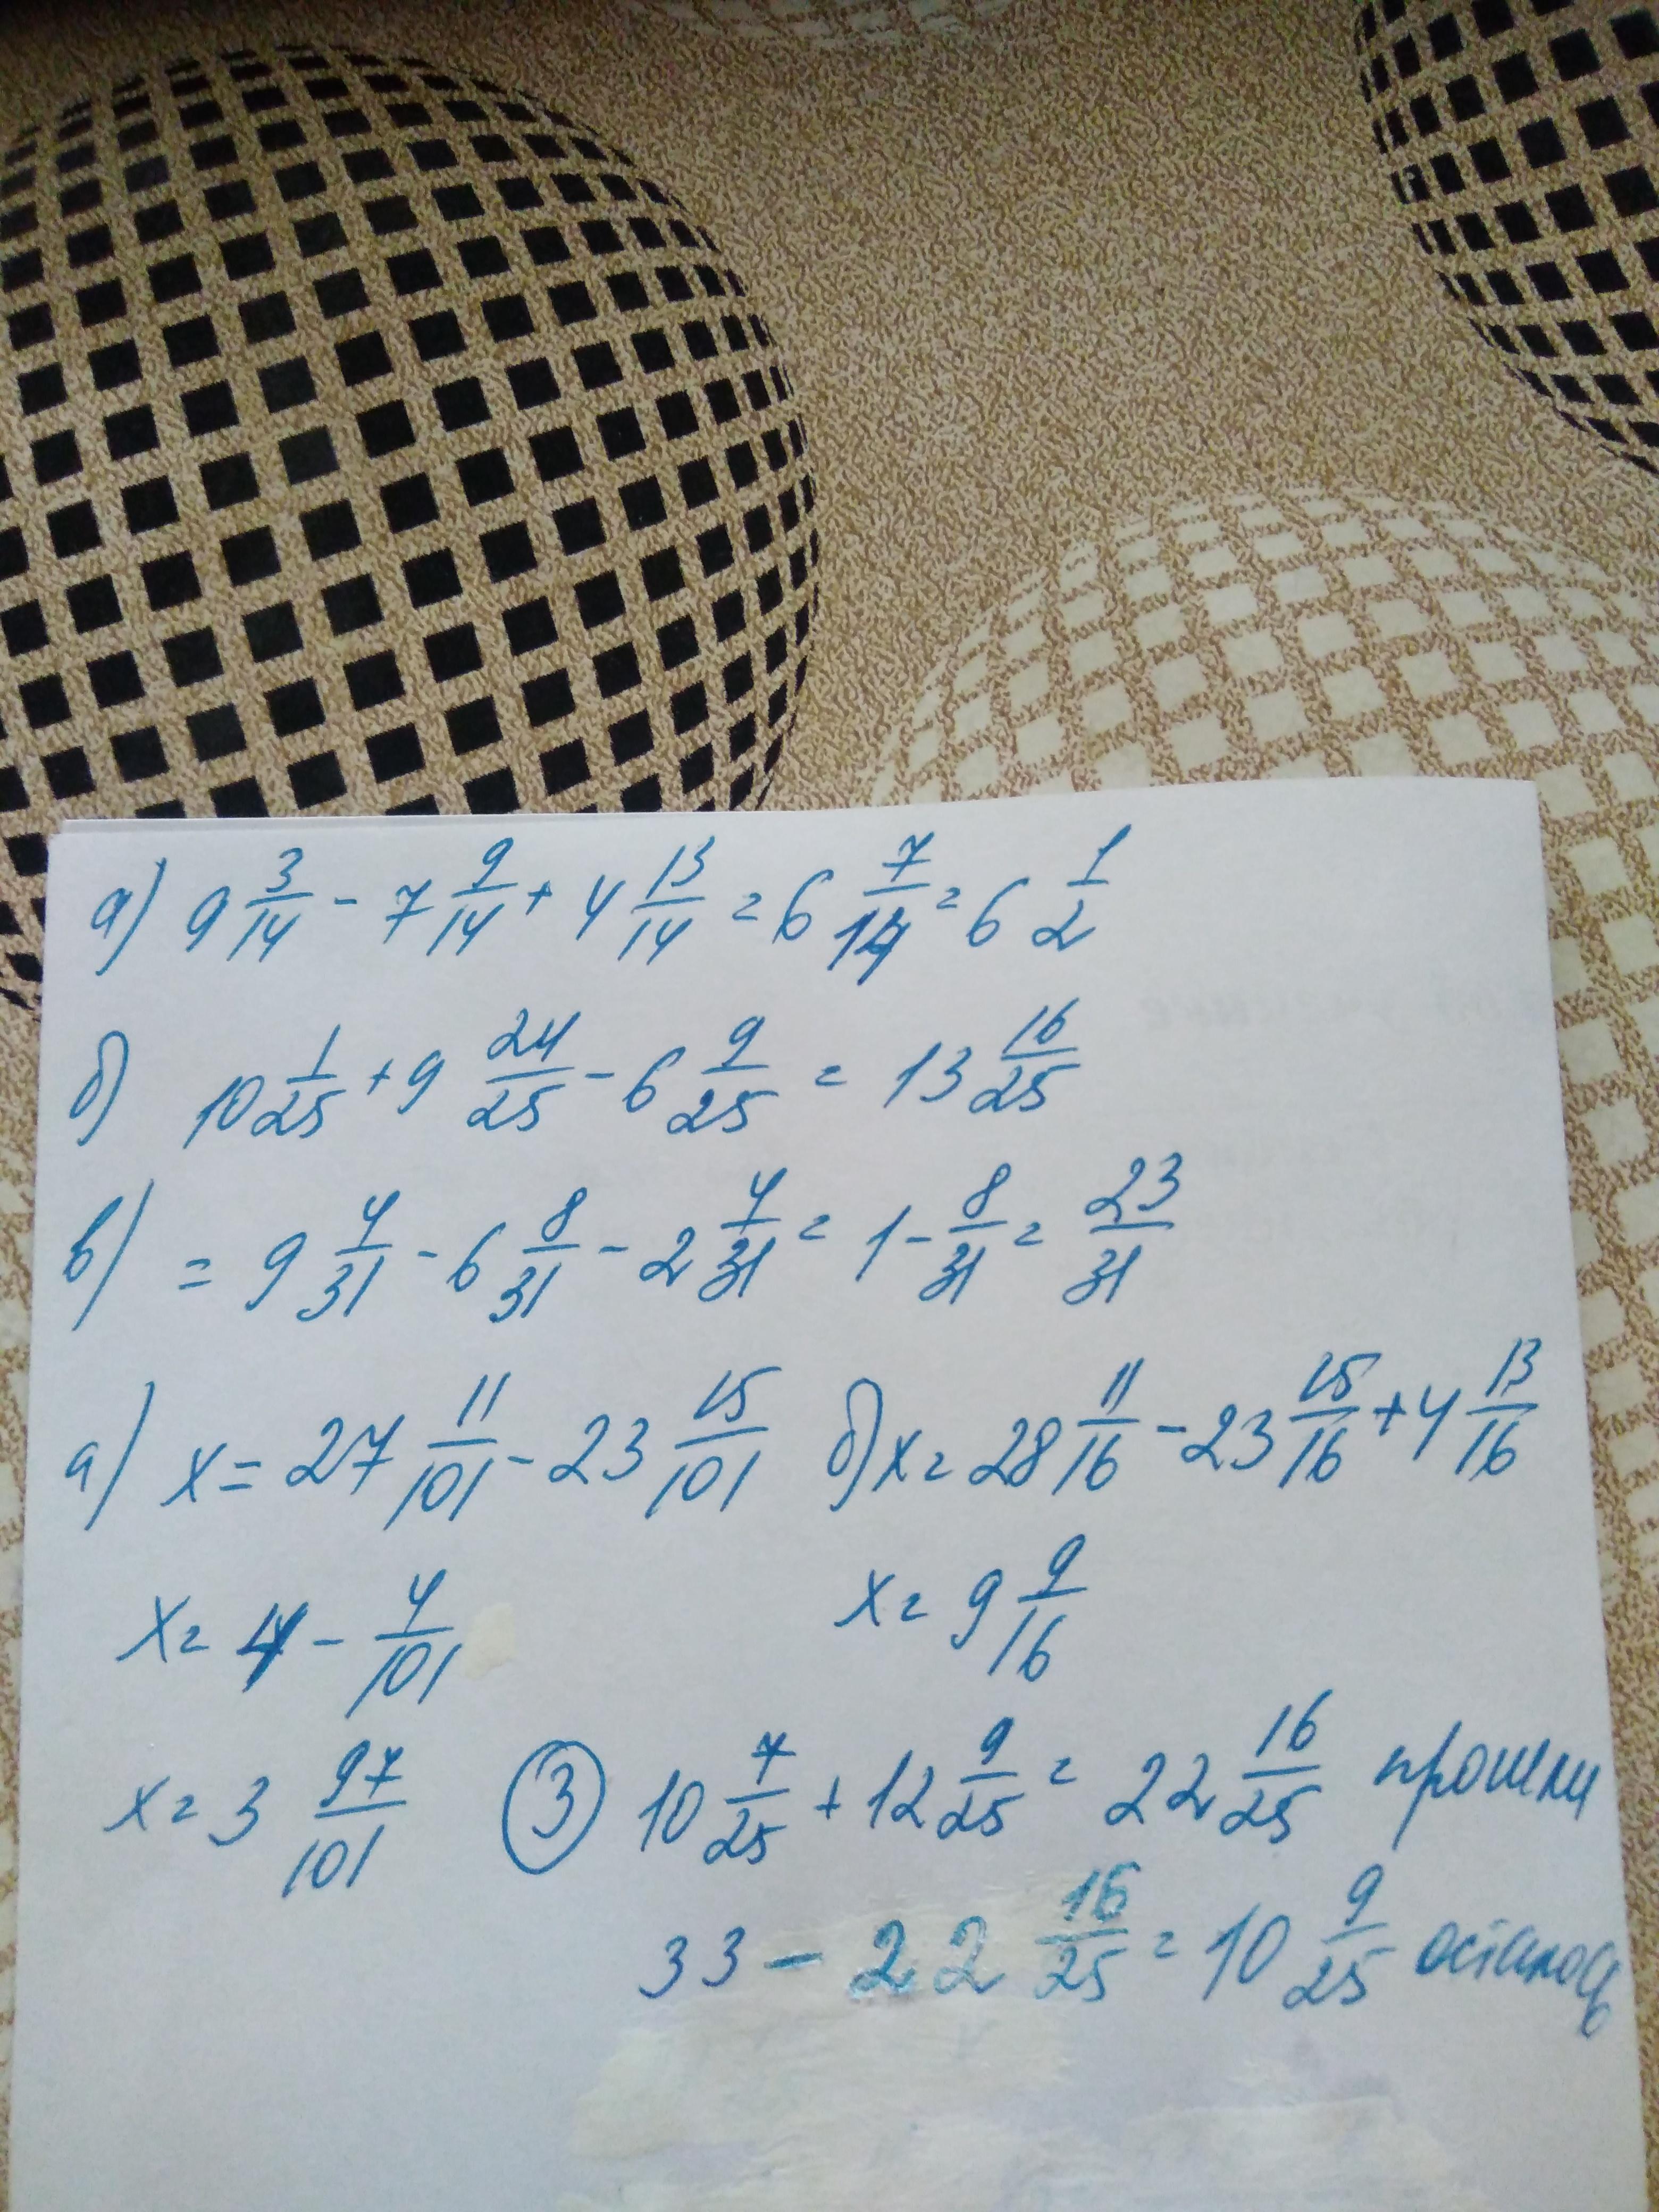 а) 9 3/14 - 7 9/14 + 4 13/14 = 6 7/14 = 6 1/2
б) 10 1/25 + 9 24/25 - 6 9/25 = 13 16/25
в) = 9 4/31 - 6 8/31 - 2 4/31 = 1 - 8/31 = 23/31
а) x = 27 11/101 - 23 15/101 б) x = 28 11/16 - 23 15/16 + 4 13/16
x = 4 - 4/101 x = 9 9/16
x = 3 97/101 ③ 10 7/25 + 12 9/25 = 22 16/25 прошли
33 - 22 16/25 = 10 9/25